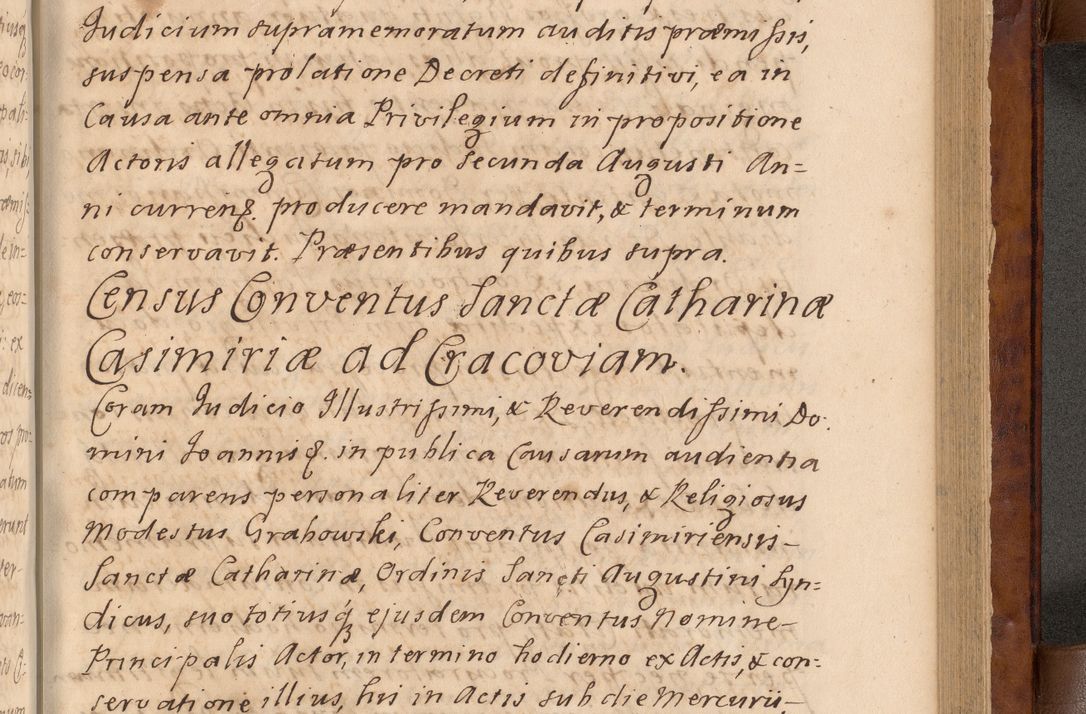 Iudicium supramemoratum auditis præmissis,
suspensa prolatione Decreti definitivi, ea in
Causa ante omnia Privilegium in propositione
Actoris allegatum pro secunda Augusti An=
ni currenꝭ. producere mandavit, & terminum
conservavit. Præsentibus quibus supra.
Census Conventus Sanctæ Catharinæ
Casimiriæ ad Cracoviam.
Coram Iudicio Illustrissimi, & Reverendissimi Do:
mini Ioannis ꝭ. in publica Causarum audientia
comparens personaliter Reverendus, & Religiosus
Modestus Grabowski, Conventus Casimiriensis-
Sanctæ Catharinæ, Ordinis Sancti Augustini Syn=
dicus, suo totiusq́ ejusdem Conventus Nomine-
Principalis Actor, in termino hodierno ex Actis, & con:
servatione illius, his in Actis sub die Mercurii,-